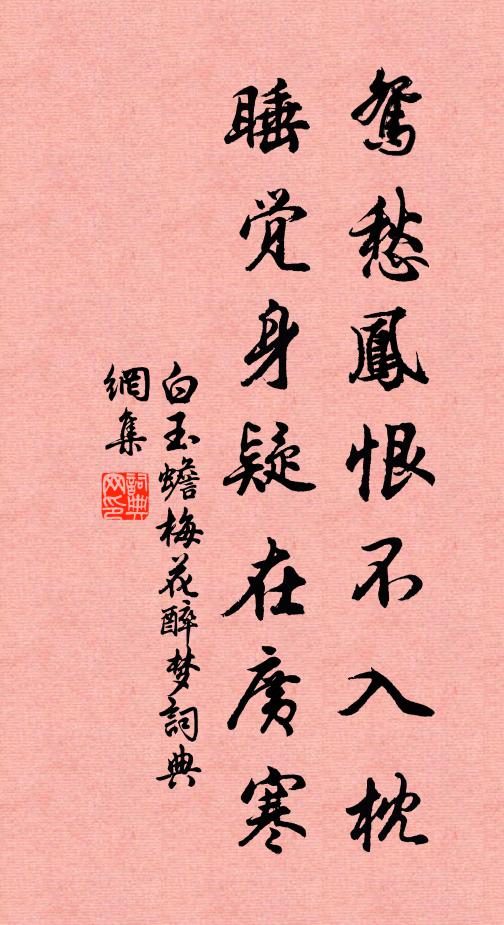 鴛愁鳳恨不入枕
睡觉身疑在廣寒
白玉蟾梅花醉梦詞典
網集
詞典网印